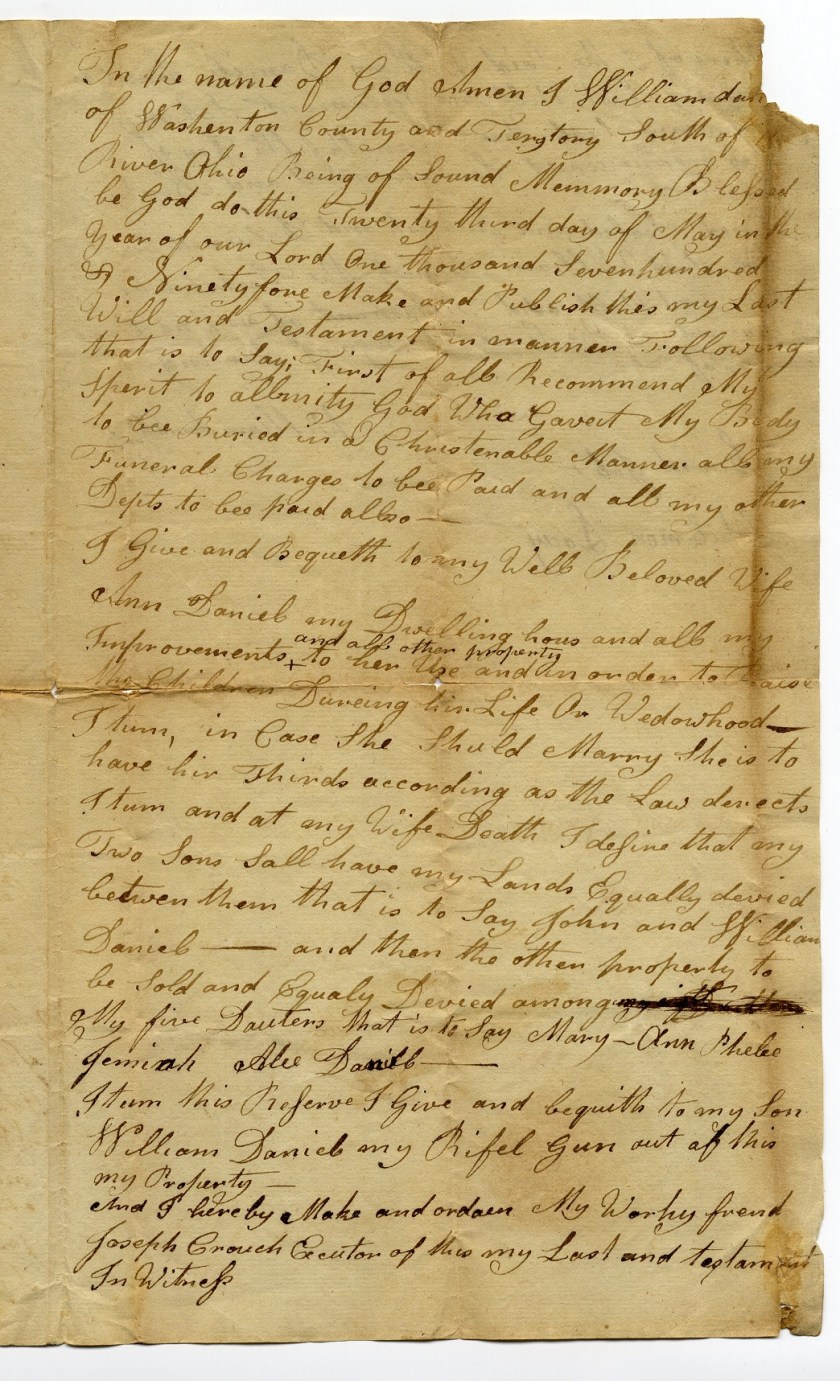 In the name of God Amen I William dan
of Washenton County and Terytory South of the
River Ohio Being of Sound Memmory Blessed
be God do this Twenty third day of May in the
year of our Lord One thousand Sevenhundred
& Ninetyfore Make and Publish this my Last
Will and Testament in manner Following
that is to Say; First of all Recommend My
Sperit to allmity God Who Gaveit My Body
to bee Buried in a Christenable Manner all my
Funeral Charges to bee Paid and all my other
Depts to bee paid allso —
I Give and Bequeth to my Well Beloved Wife
Ann Daniel my Dwelling hous and all my
and all other property
Improvements + to her Use and in order to Raise
the Children Dureing hir Life Or Wedowhood —
Itum, in Case She Shuld Marry She is to
have hir Thirds according as the Law derects
Itum and at my Wife Death I desire that my
Two Sons Sall have my Lands Equally devied
betwen them that is to Say John and William
Daniel — and then the other property to
be Sold and Equaly Devied among
My five Dauters that is to Say Mary — Ann Phebe
Jemiah Daniel —
Itum this Reserve I Give and bequith to my Son
William Daniel my Rifel Gun out of this
my Property —
And I hereby Make and ordaen My Worhy frend
Joseph Crouch Eecutor of this my Last and testament
In Witness